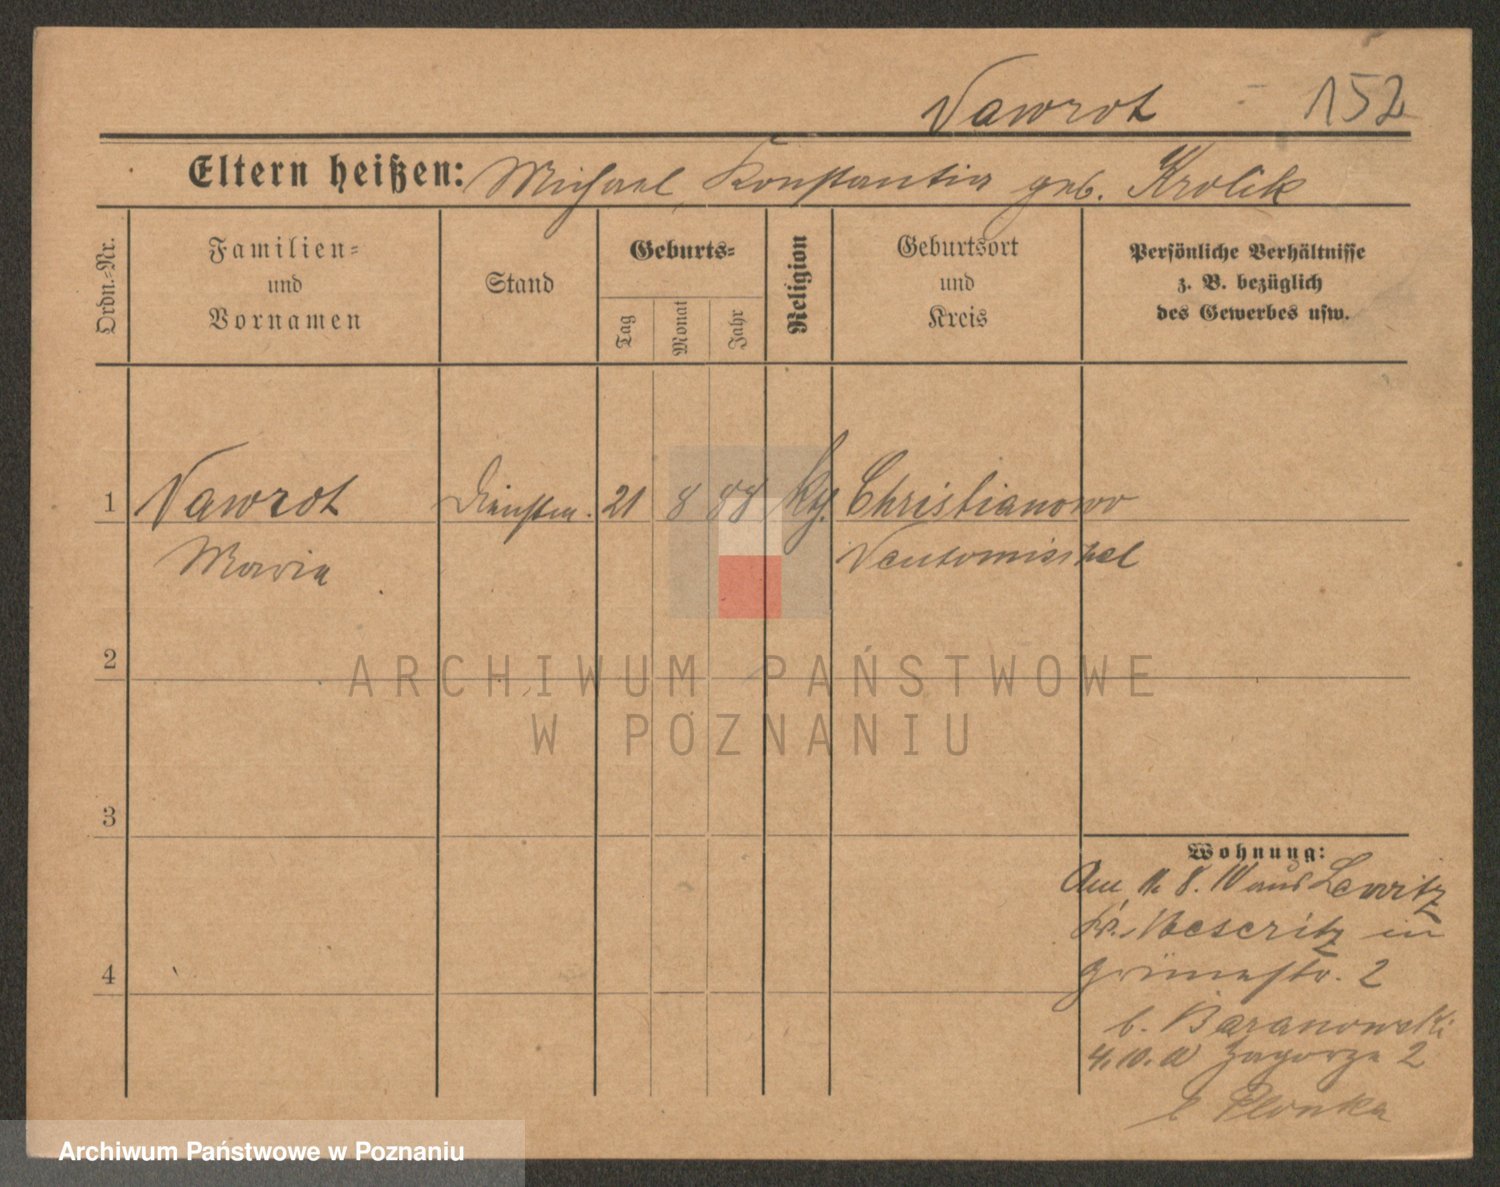 Nawrot 152
Eltern heißen: Michael, Konstantia geb. Krolik
Ordn.-Nr.
Familien-
und
Vornamen
Stand
Geburts-
Tag
Monat
Jahr
Religion
Geburtsort
und
Kreis
Persönliche Verhältnisse
z. B. bezüglich
des Gewerbes usw.
1 Nawrot Dienstm. 21 8 88 kth. Christianowo
Maria Neutomischel
2
3
4
Wohnung:
Am 11. 8. 10 aus Lewitz
Kr. Meseritz in
Grünestr. 2
b. Baranowski
4.10.10 Zagorze 2
b Plonka
ARCHIWUM PAŃSTWOWE
W POZNANIU
Archiwum Państwowe w Poznaniu